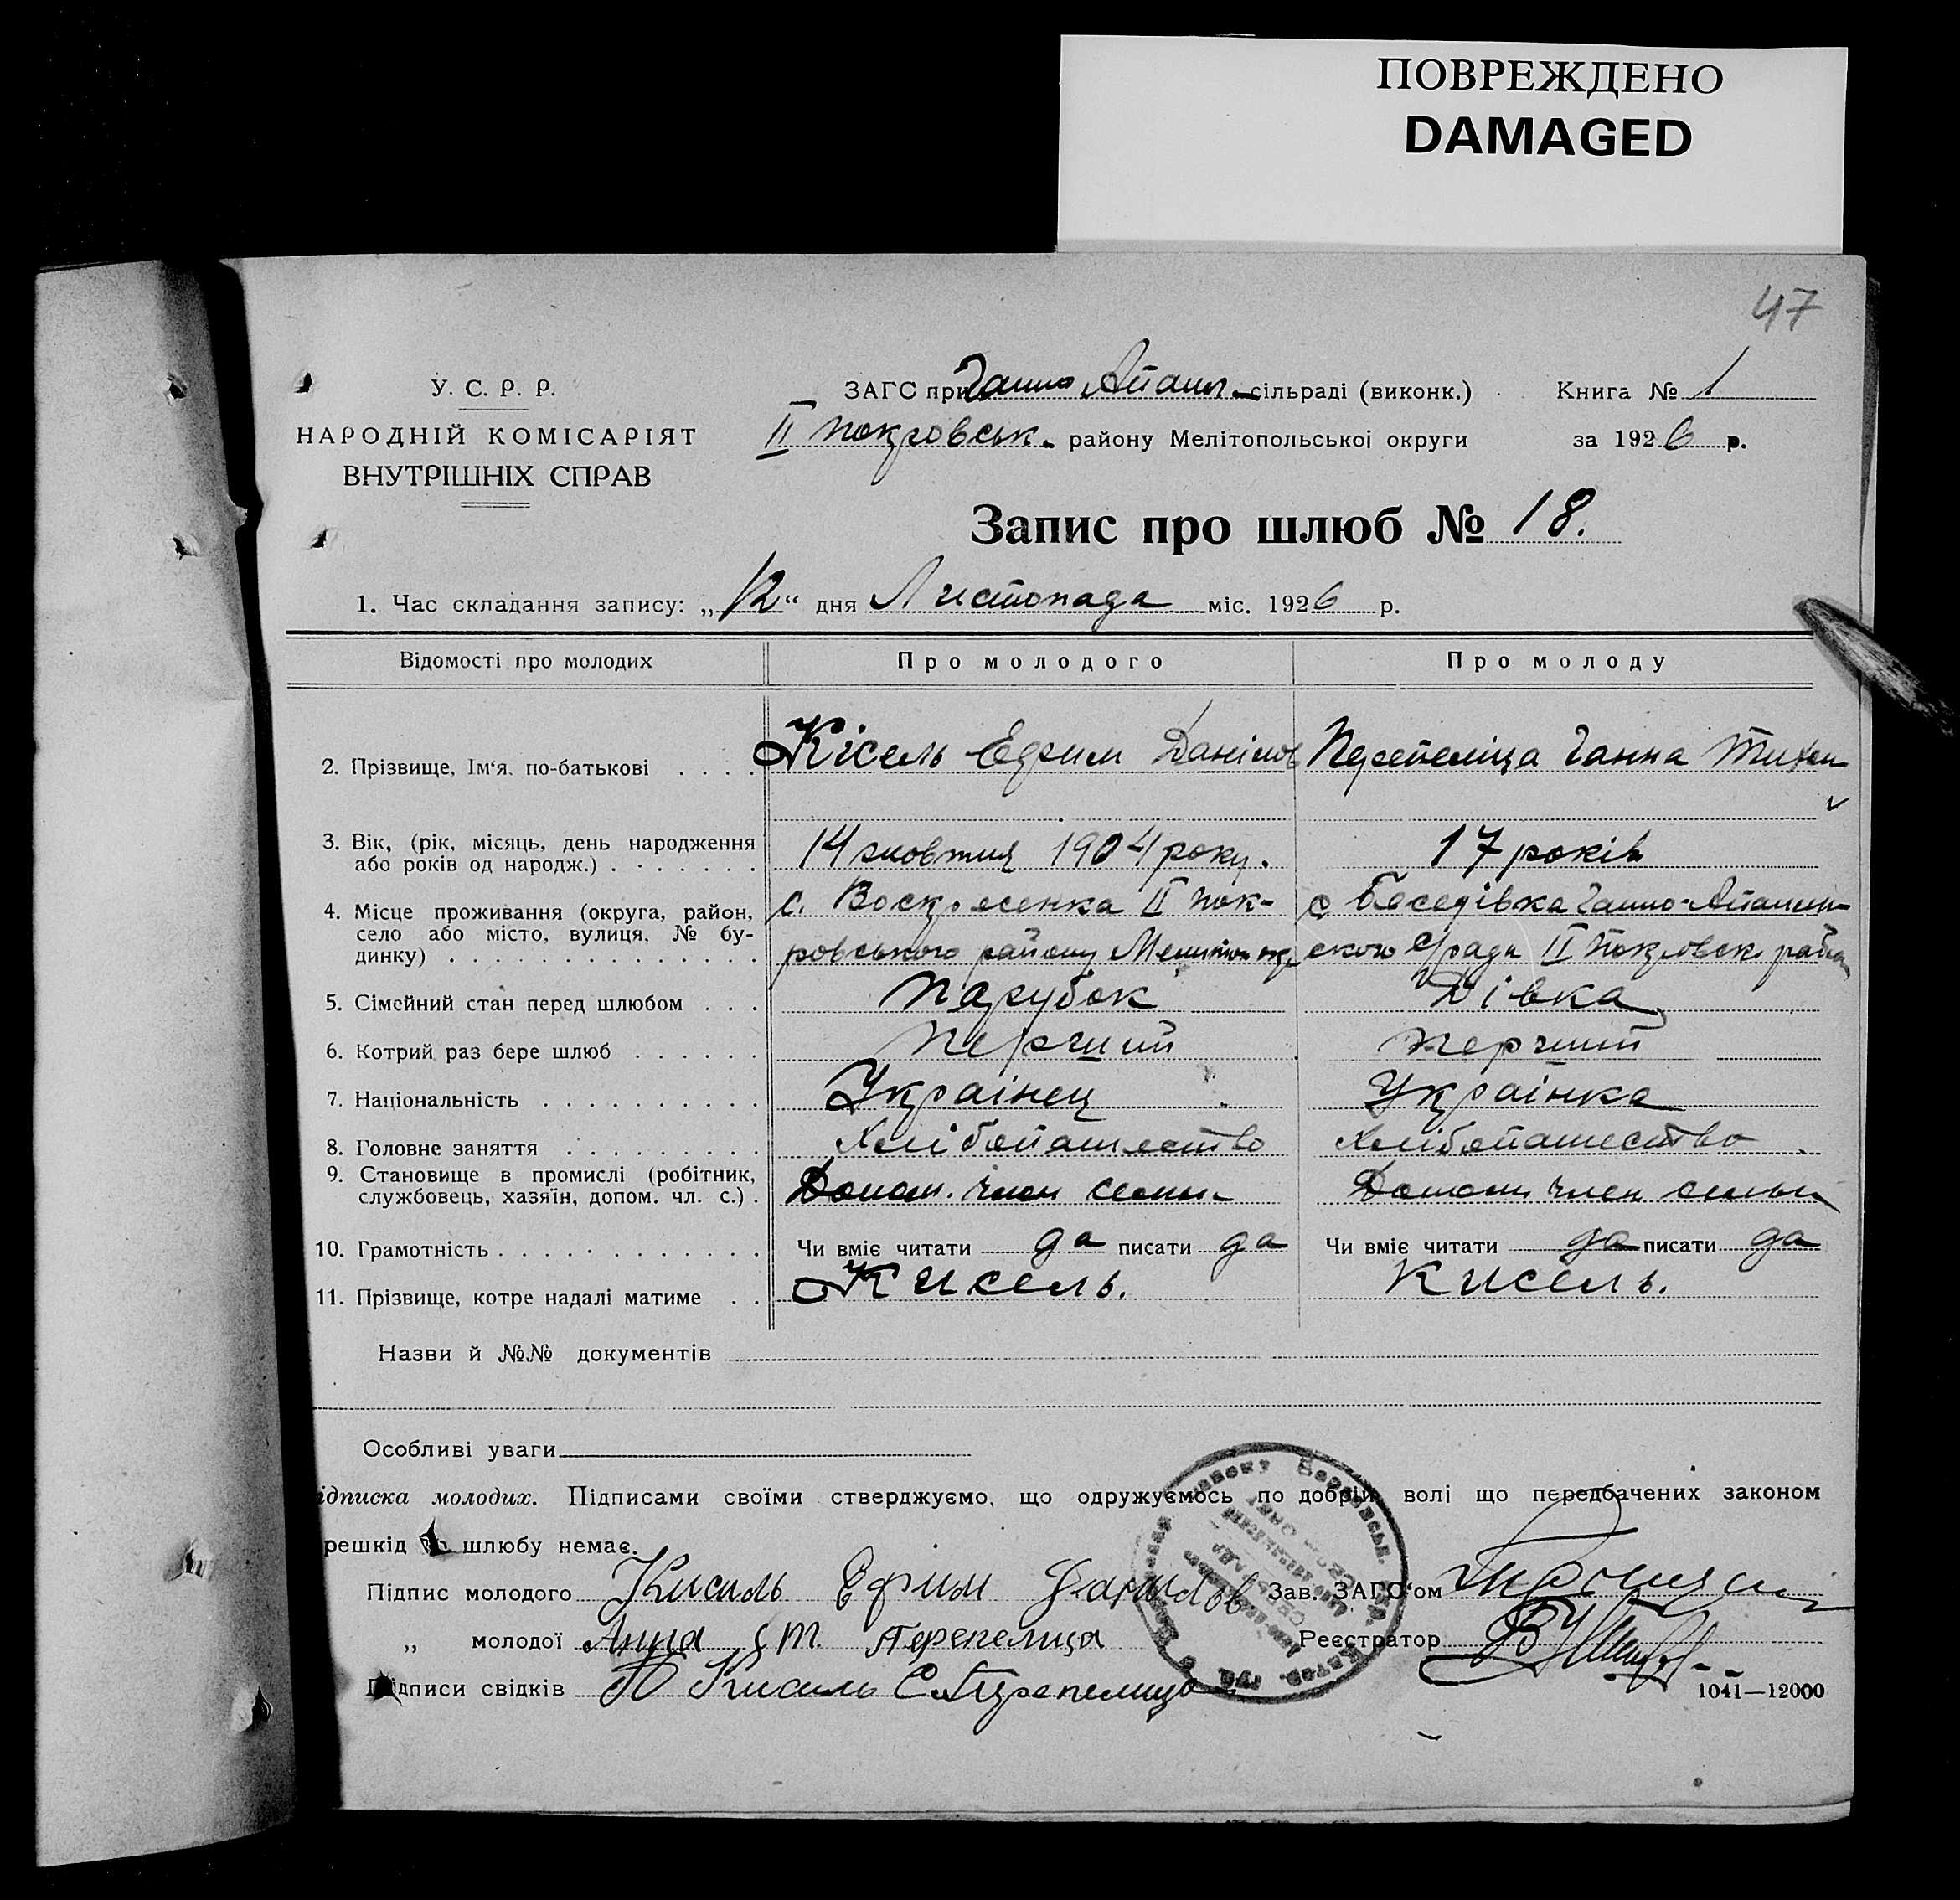 ПОВРЕЖДЕНО
DAMAGED
47
У. С. Р. Р.
НАРОДНІЙ КОМІСАРІЯТ
ВНУТРІШНІХ СПРАВ
ЗАГС при Ганно Апанл- сільраді (виконк.)
Книга № 1
II Покровськ. району Мелітопольської округи
за 1926 р.
Запис про шлюб № 18.
1. Час складання запису: „12“ дня Листопада міс. 1926 р.
Відомості про молодих
Про молодого
Про молоду
2. Прізвище, Ім‘я, по-батькові . . . . Кісель Ефрим Данілов Перепеліца Ганна Тихон
3. Вік, (рік, місяць, день народження
або років од народж.) . . . . . . . 14 жовтня 1904 року. 17 років
4. Місце проживання (округа, район, с. Воскресенка II Пок- с Беседівка Ганно-
село або місто, вулиця, № бу-
динку) . . . . . . . . . . . . . . ровського району Мелітоп окр. ского с/ради II Покровск. район
5. Сімейний стан перед шлюбом . . . Парубок Дівка
6. Котрий раз бере шлюб . . . . . . Перший Перший
7. Національність . . . . . . . . . . Українец Українка
8. Головне заняття . . . . . . . . . Хлібопашество Хлібопашество
9. Становище в промислі (робітник,
службовець, хазяїн, допом. чл. с.) . Допом. член семьи Допом член семьи
10. Грамотність . . . . . . . . . . . . Чи вміє читати да писати да Чи вміє читати да писати да
11. Прізвище, котре надалі матиме . . Кисель. Кисель.
Назви й №№ документів
Особливі уваги
ідписка молодих. Підписами своїми стверджуємо, що одружуємось по добрій волі що передбачених законом
решкід до шлюбу немає.
Підпис молодого Кисиль Ефрим Данилов Зав. ЗАГС‘ом
„ молодої Анна Т. Перепелица Реєстратор
Підписи свідків Кисиль С Перепелица
1041—12000